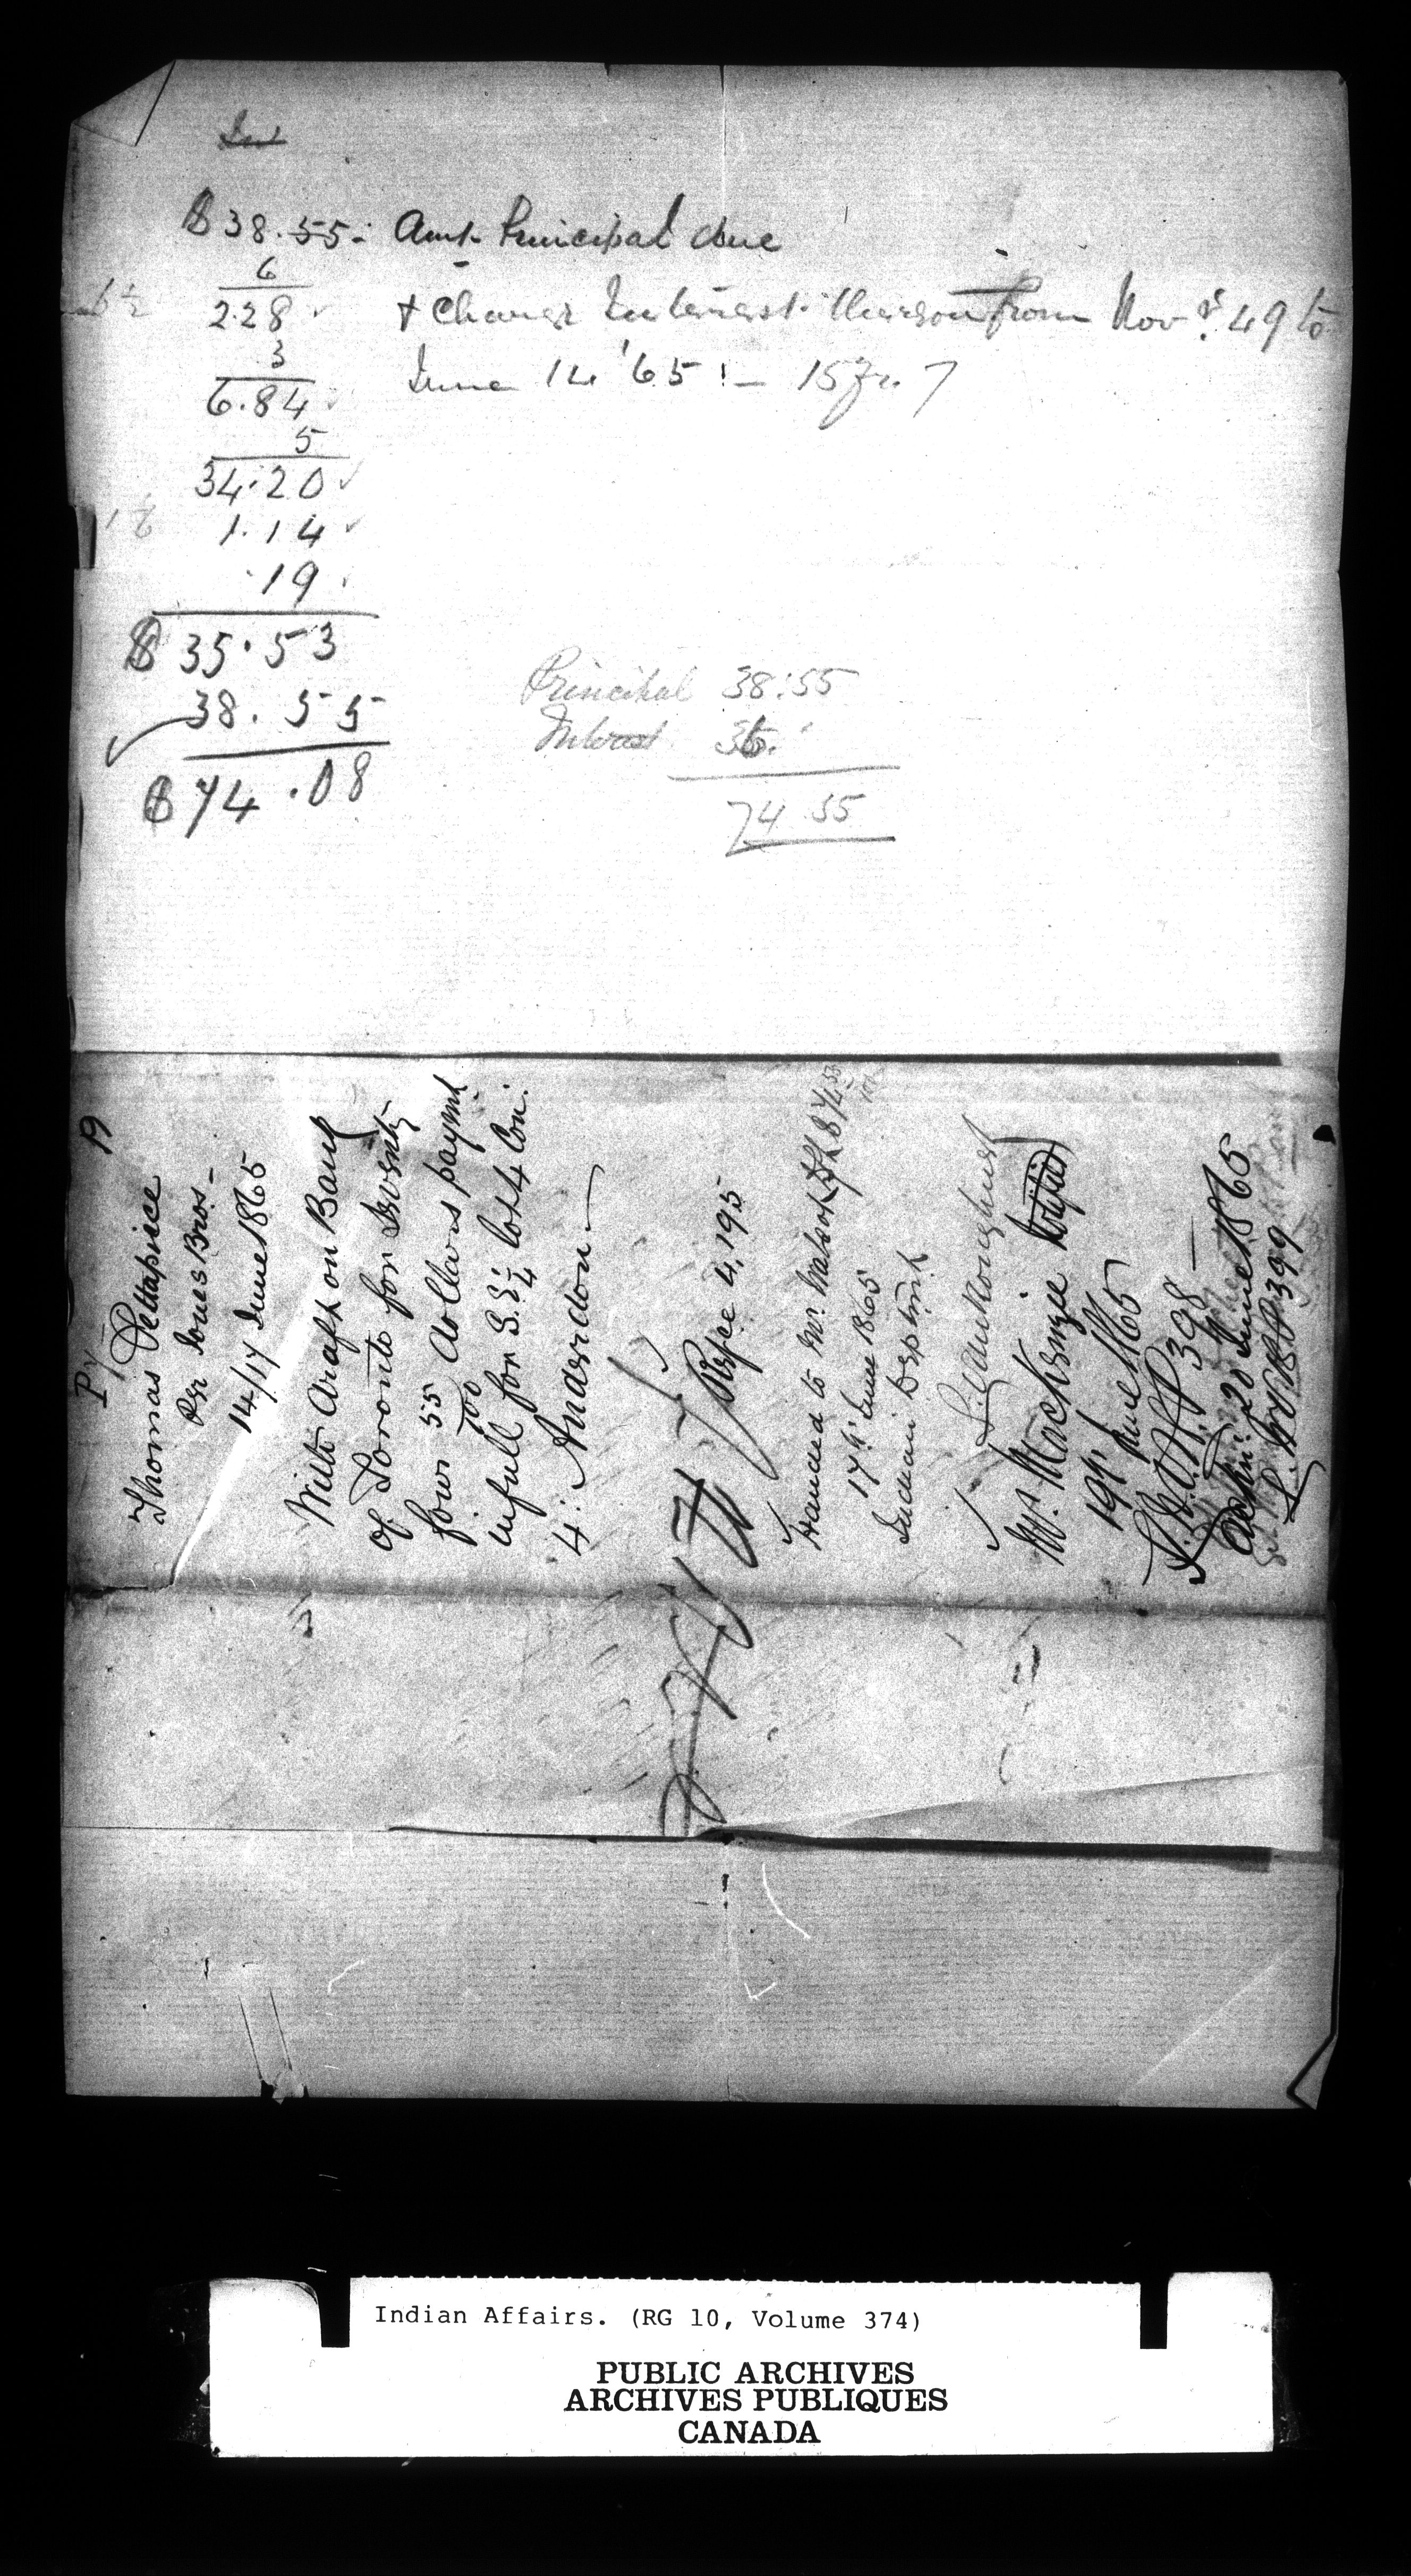 Int
$38.55 - Amt. Principal due
6
2.28
+ Charge Interest thereon from Novr. 49 to
3
6.84
June 14 '65 :- 15 yr. 7
5
34.20
1.14
.19
$35.53
38.55
$74.08
Principal 38:55
Interest 36.
74.55
19
Thomas
Per Jones Bros -
14/17 June 1865
With draft on Bank
of Toronto for seventy
four 55/100 dollars paymt
in full for S. E. 1/4 lot 4 Con:
4: Anderdon
Refce 4,195
Handed to Mr. Walcot
17th June 1865
Indian Deptmt
Mr. MacKenzie
19th June 1865
L.W.O.P. 398
Ackn: 20 June 1865
399
Indian Affairs. (RG 10, Volume 374)
PUBLIC ARCHIVES
ARCHIVES PUBLIQUES
CANADA